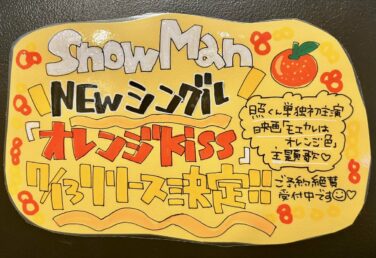 Snow Man
NEWシングル
「オレンジkiss」
7/13リリース決定!!
照くん単独初主演
映画「モエカレは
オレンジ色」
主題歌♡
ご予約絶賛
受付中です☺♡